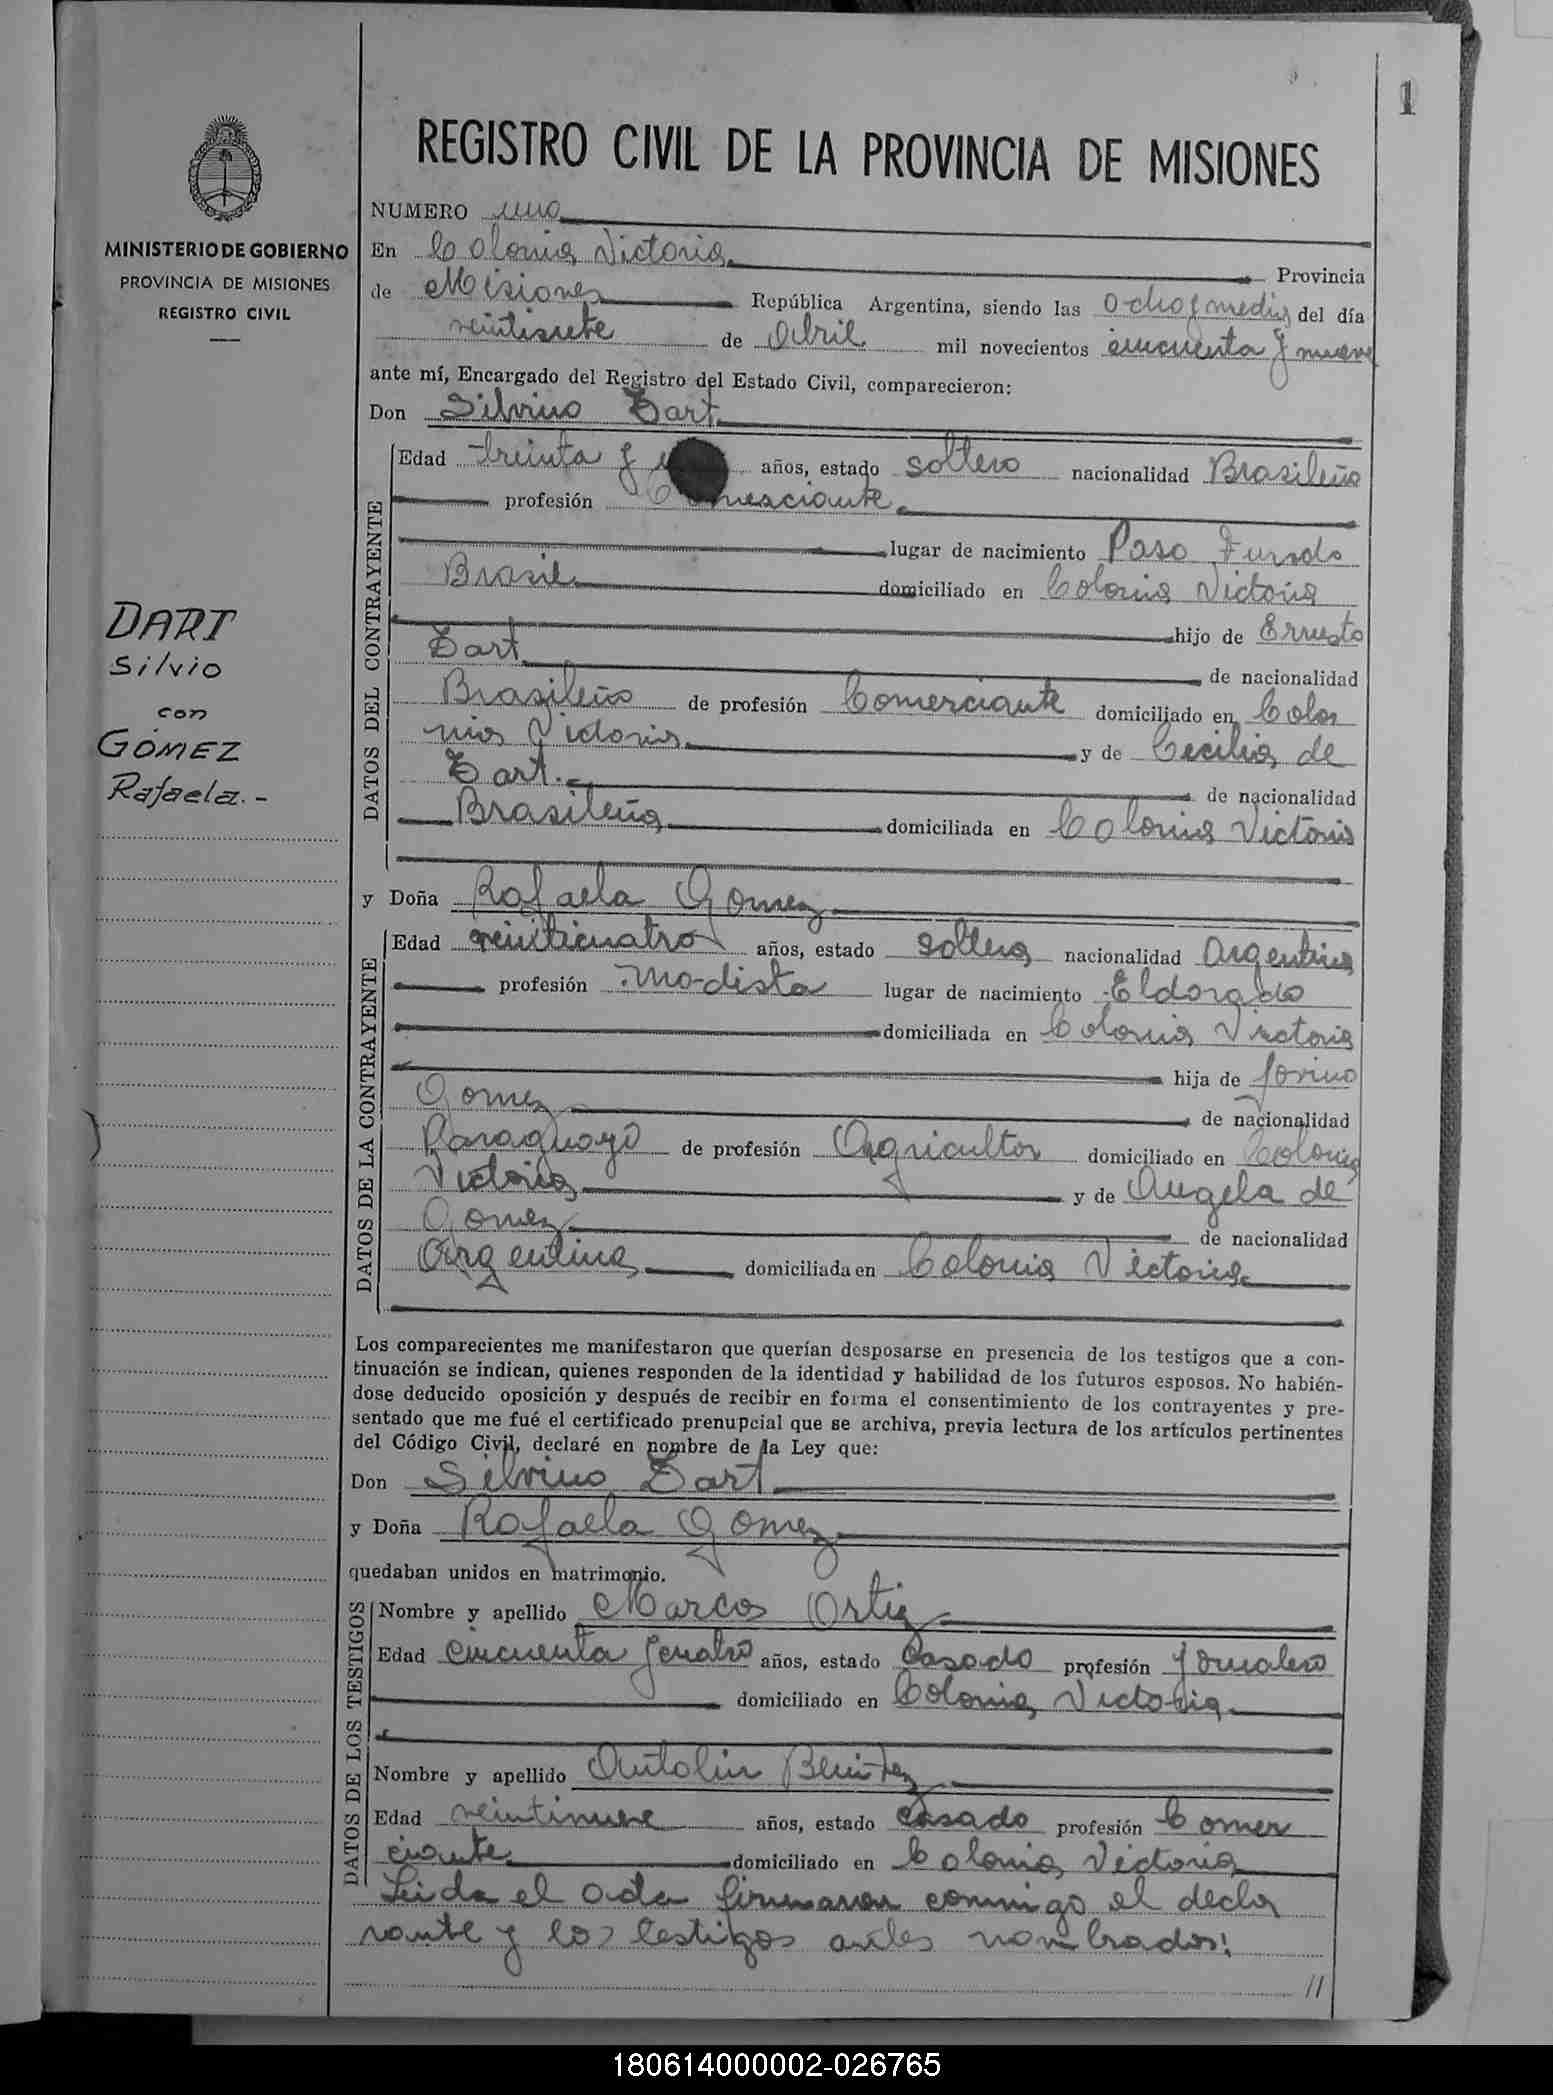 1
REGISTRO CIVIL DE LA PROVINCIA DE MISIONES
MINISTERIO DE GOBIERNO
PROVINCIA DE MISIONES
REGISTRO CIVIL
DART
Silvio
con
GÓMEZ
Rafaela.-
NUMERO uno
En Colonia Victoria Provincia
de Misiones República Argentina, siendo las Ocho y media del día
veintisiete de Abril mil novecientos cincuenta y nueve
ante mí, Encargado del Registro del Estado Civil, comparecieron:
Don Silvino Dart
DATOS DEL CONTRAYENTE
Edad treinta y años, estado soltero nacionalidad Brasileño
profesión Comerciante
lugar de nacimiento Paso Fundo
Brasil domiciliado en Colonia Victoria
hijo de Ernesto
Dart de nacionalidad
Brasileño de profesión Comerciante domiciliado en Colo
nia Victoria y de Cecilia de
Dart. de nacionalidad
Brasileña domiciliada en Colonia Victoria
y Doña Rafaela Gomez
DATOS DE LA CONTRAYENTE
Edad veinticuatro años, estado soltera nacionalidad Argentina
profesión Modista lugar de nacimiento Eldorado
domiciliada en Colonia Victoria
hija de Jovino
Gomez de nacionalidad
Paraguayo de profesión Agricultor domiciliado en Colonia
Victoria y de Angela de
Gomez de nacionalidad
Argentina domiciliada en Colonia Victoria
Los comparecientes me manifestaron que querían desposarse en presencia de los testigos que a con-
tinuación se indican, quienes responden de la identidad y habilidad de los futuros esposos. No habién-
dose deducido oposición y después de recibir en forma el consentimiento de los contrayentes y pre-
sentado que me fué el certificado prenupcial que se archiva, previa lectura de los artículos pertinentes
del Código Civil, declaré en nombre de la Ley que:
Don Silvino Dart
y Doña Rafaela Gomez
quedaban unidos en matrimonio.
DATOS DE LOS TESTIGOS
Nombre y apellido Marcos Ortiz
Edad cincuenta y cuatro años, estado Casado profesión Jornalero
domiciliado en Colonia Victoria
Nombre y apellido Antolin Benitez
Edad veintinueve años, estado Casado profesión Comer
ciante domiciliado en Colonia Victoria
Leida el acta firmaron conmigo el decla
rante y los testigos antes nombrados:
//
180614000002-026765